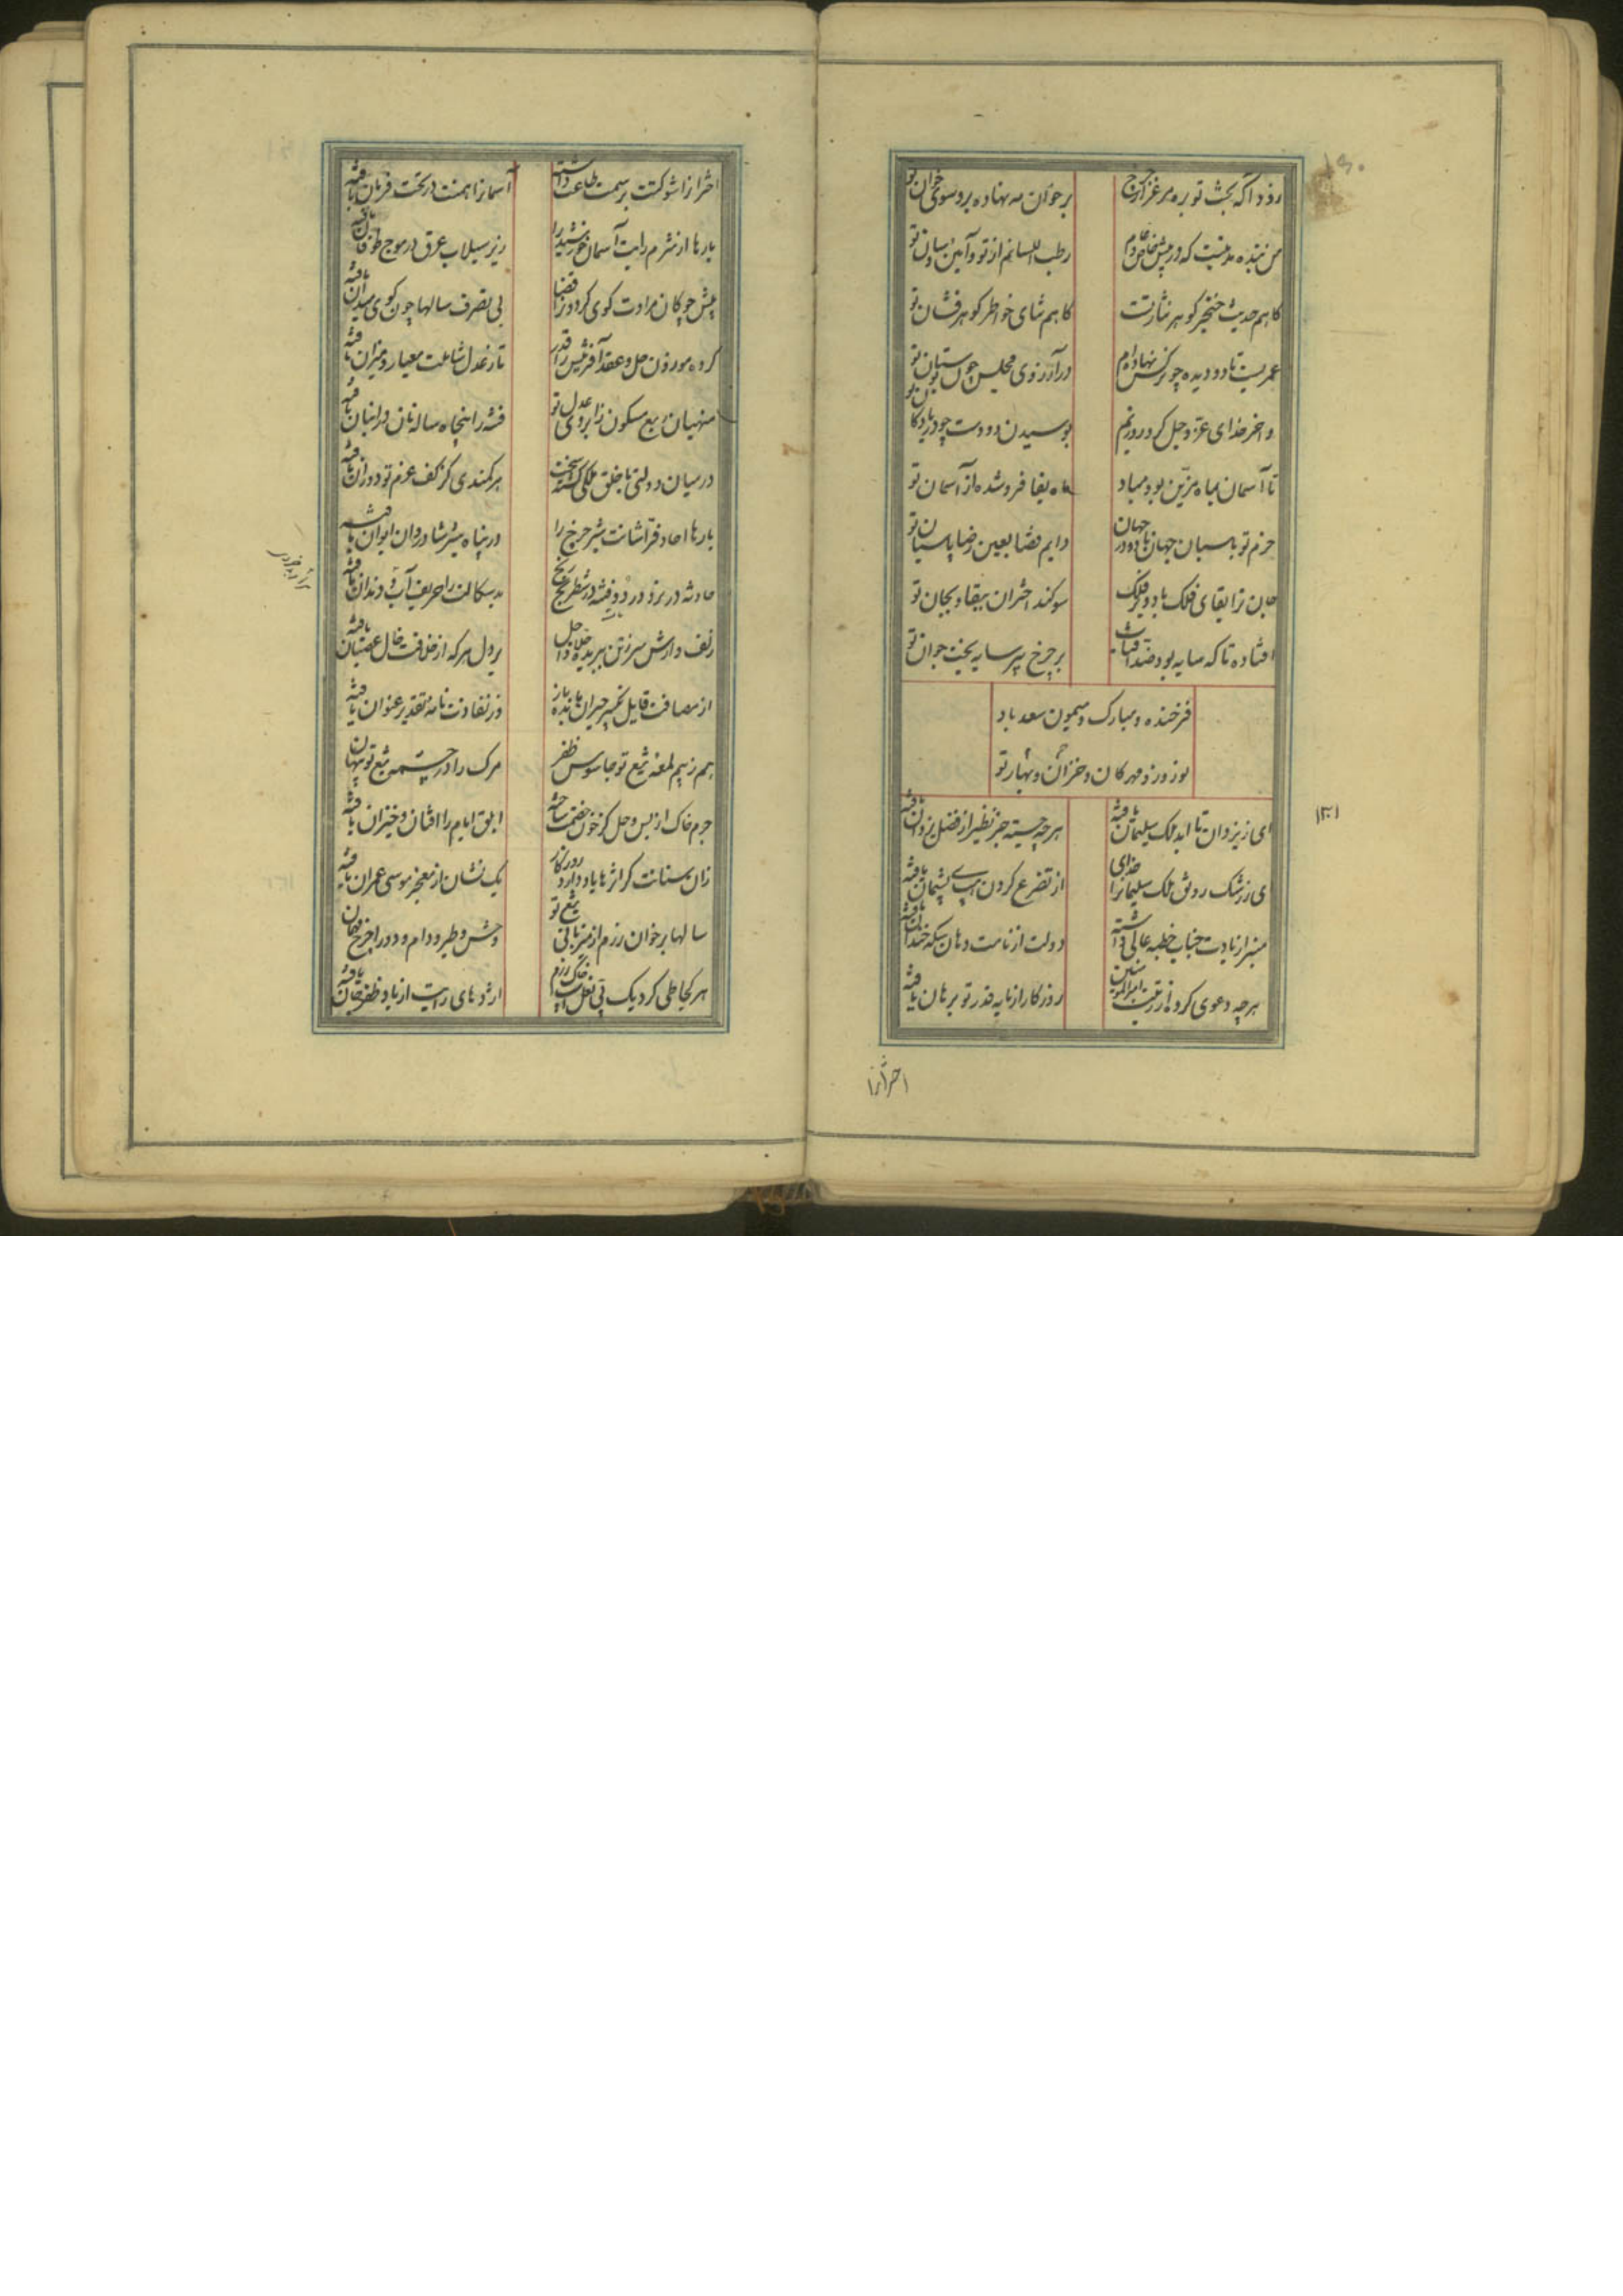 روزی
من بنده مدتیست که در پیش خاص و عام
رطب اللسانم از تو و آیین و سان تو
گاهم حدیث خنجر گوهر نثار تست
گاهم ثنای خواطر گوهرفشان تو
عمریست تا دو دیده چو نرگس نهاده‌ام
در آرزوی مجلس چون بوستان تو
و اخر خدای عز و جل کرد روزیم
بوسیدن دو دست چو دریا و کان تو
تا آسمان بماه مزین بود مباد
ماه بقا فروشده از آسمان تو
حزم تو پاسبان جهان باد و در جهان
دایم قضا بعین رضا پاسبان تو
جان ترا بقای فلک باد و بر فلک
سوکند اختران ببقا و بجان تو
افتاده تا که سایه بود ضد آفتاب
بر چرخ پیر سایه بخت جوان تو
فرخنده و مبارک و میمون و سعد باد
نوروز و مهرکان و خزان و بهار تو
ای ز یزدان تا ابد ملک سلیمان یافته
هرچه جسته جز نظیر از فضل یزدان یافته
ای ز رشک رونق ملک سلیمانرا خدای
از تضرع کردن هب لی پشیمان یافته
منبر از یادت جناب خطبه عالی داشته
دولت از نامت دهان سکه خندان یافته
هرچه دعوی کرده از رتبت امیرالمومنین
روزکار از پایه قدر تو برهان یافته
۱۳۱
اخترانرا
اخترانرا شوکتت بر سمت طاعت داشته
آسمانرا همتت در تحت فرمان یافته
بارها از شرم رایت آسمان خورشید را
زیر سیلاب عرق در موج طوفان یافته
پیش چوکان مرادت کوی کردون را قضا
بی تصرف سالها چون کوی میدان یافته
کرده موزون حل و عقد آفرینش را قدر
تا ز عدل شاملت معیار و میزان یافته
منهیان ربع مسکون ز ابروی عدل تو
فتنه را پنجاه ساله نان در انبان یافته
هر کمندی کز کف عزم تو دوران یافته
بارها احاد فراشانت شیر چرخ را
در پناه شیر شادروان ایوان یافته
حادثه در نرد درد و فتنه در شطرنج رنج
بدسکالت را حریف آب دندان یافته
زلف وارش سر ز تن ببریده جلاد اجل
بر دل هر که از خلافت خال عصیان یافته
از مصافت قایل تکبیر حیران مانده باز
وز نفاذت نامه تقدیر عنوان یافته
هم ز بیم لمعه تیغ تو جاسوس ظفر
مرک را در چشمه تیغ تو پنهان
جرم خاک از بس وحل کز خون خصمت ساخته
ابلق ایام را افتان و خیزان یافته
زان سنانت کز اثرها یاد دارد روزکار
یک نشان از معجز موسی عمران یافته
سالها بر خوان رزم از میزبانی تیغ تو
وحش و طیر و دام و دد را چرخ مهمان
هر کجا طی کرد یک پی نعل اسبت خاک رزم
اژدهای رایت از باد ظفر جان یافته